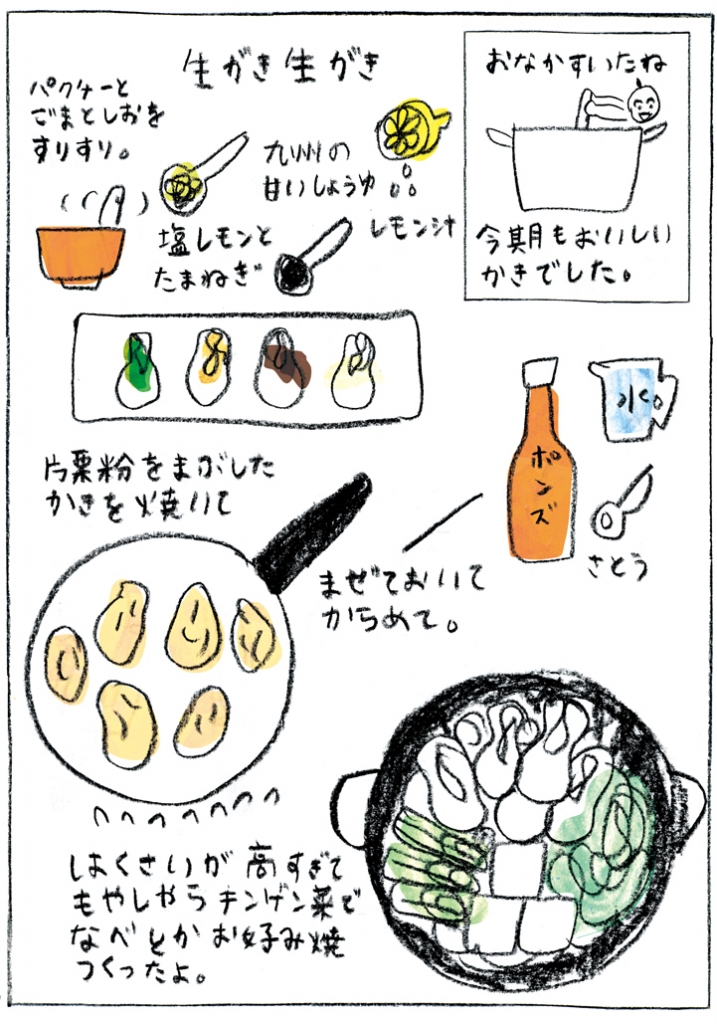 生がき生がき
パクチーと
ごまとしおを
すりすり。
塩レモンと
たまねぎ
九州の
甘いしょうゆ
レモン汁
おなかすいたね
今期もおいしい
かきでした。
片栗粉をまぶした
かきを焼いて
ポンズ
水
さとう
まぜておいて
からめて。
はくさいが高すぎて
もやしやらチンゲン菜で
なべとかお好み焼
つくったよ。